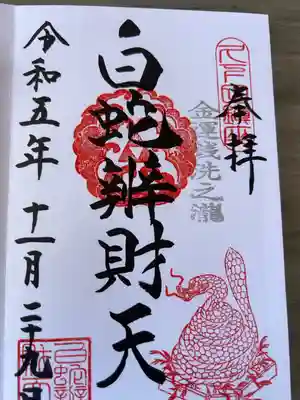 奉拝
金運銭洗之瀧
白蛇辨財天
令和五年十一月二十九日